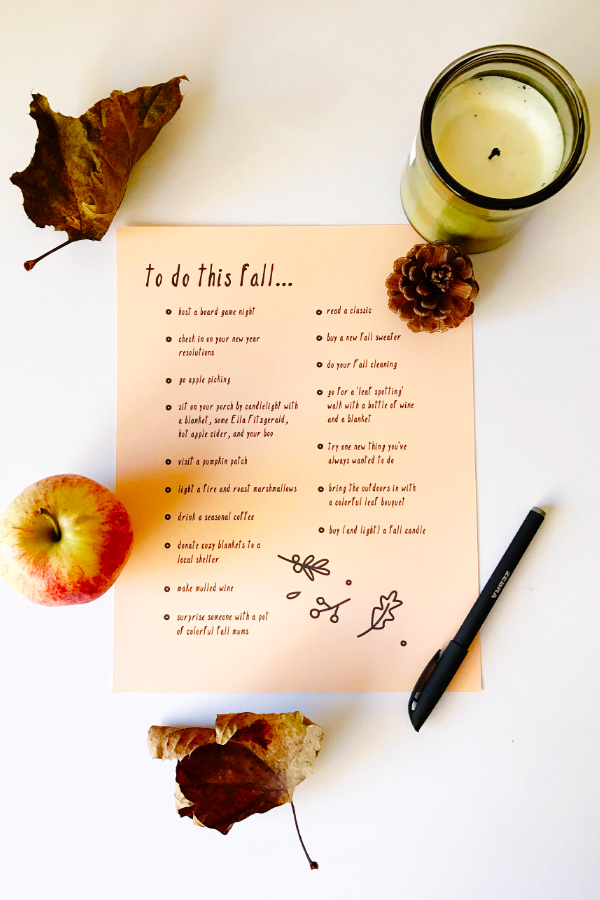 to do this fall...
host a board game night
check in on your new year
resolutions
go apple picking
sit on your porch by candlelight with
a blanket, some Ella Fitzgerald,
hot apple cider, and your boo
visit a pumpkin patch
light a fire and roast marshmallows
drink a seasonal coffee
donate cozy blankets to a
local shelter
make mulled wine
surprise someone with a pot
of colorful fall mums
read a classic
buy a new fall sweater
do your fall cleaning
go for a 'leaf spotting'
walk with a bottle of wine
and a blanket
try one new thing you've
always wanted to do
bring the outdoors in with
a colorful leaf bouquet
buy (and light) a fall candle
ZEBRA